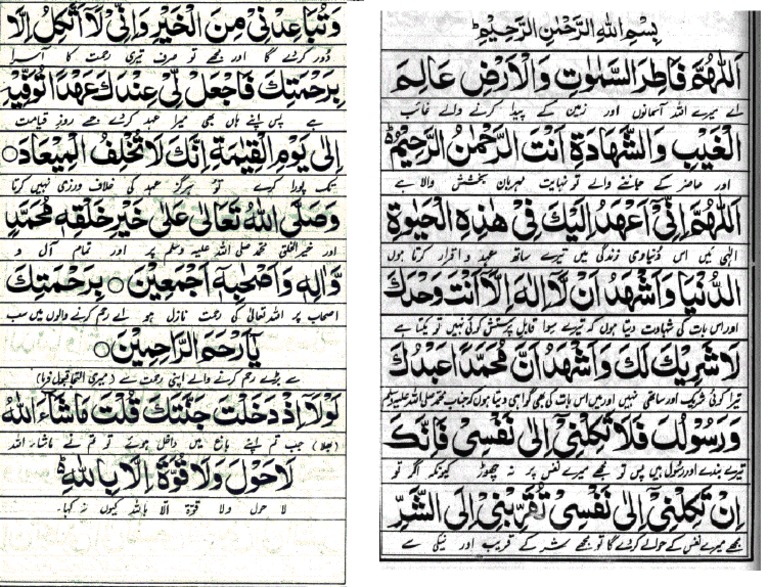 بِسْمِ اللّٰهِ الرَّحْمٰنِ الرَّحِيْمِ
اَللّٰهُمَّ فَاطِرَ السَّمٰوٰتِ وَالْاَرْضِ عَالِمَ
اے میرے اللہ آسمانوں اور زمین کے پیدا کرنے والے غائب
الْغَيْبِ وَالشَّهَادَةِ اَنْتَ الرَّحْمٰنُ الرَّحِيْمُ
اور حاضر کے جاننے والے تو نہایت مہربان بخشش والا ہے
اَللّٰهُمَّ اِنِّيْٓ اَعْهَدُ اِلَيْكَ فِيْ هٰذِهِ الْحَيٰوةِ
الٰہی میں اس دُنیاوی زندگی میں تیرے ساتھ عہد و اقرار کرتا ہوں
الدُّنْيَا وَاَشْهَدُ اَنْ لَّآ اِلٰهَ اِلَّآ اَنْتَ وَحْدَكَ
اور اس بات کی شہادت دیتا ہوں کہ تیرے سوا قابل پرستش کوئی نہیں تو یکتا ہے
لَا شَرِيْكَ لَكَ وَاَشْهَدُ اَنَّ مُحَمَّدًا عَبْدُكَ
تیرا کوئی شریک اور ساتھی نہیں اور میں اس بات کی بھی گواہی دیتا ہوں کہ جناب محمد صلی اللہ علیہ وسلم
وَرَسُوْلُكَ فَلَا تَكِلْنِيْٓ اِلٰى نَفْسِيْ فَاِنَّكَ
تیرے بندے اور رسول ہیں پس تو مجھے میرے نفس پر نہ چھوڑ کیونکہ اگر تو
اِنْ تَكِلْنِيْٓ اِلٰى نَفْسِيْ تُقَرِّبْنِيْٓ اِلَى الشَّرِّ
مجھے میرے نفس کے حوالے کر دے گا تو مجھے شر کے قریب اور نیکی سے
وَتُبَاعِدْنِيْ مِنَ الْخَيْرِ وَاِنِّيْ لَآ اَتَّكِلُ اِلَّا
دُور کر دے گا اور مجھے تو صرف تیری رحمت کا آسرا
بِرَحْمَتِكَ فَاجْعَلْ لِّيْ عِنْدَكَ عَهْدًا تُوَفِّيْهِ
ہے پس اپنے ہاں بھی میرا عہد کر دے جسے روز قیامت
اِلٰى يَوْمِ الْقِيٰمَةِ اِنَّكَ لَا تُخْلِفُ الْمِيْعَادَ○
تک پورا کرے تو ہرگز عہد کی خلاف ورزی نہیں کرتا
وَصَلَّى اللّٰهُ تَعَالٰى عَلٰى خَيْرِ خَلْقِهٖ مُحَمَّدٍ
اور خیرالخلق محمد صلی اللہ علیہ وسلم پر اور تمام آل و
وَّاٰلِهٖ وَاَصْحٰبِهٖٓ اَجْمَعِيْنَ○ بِرَحْمَتِكَ
اصحاب پر اللہ تعالٰی کی رحمت نازل ہو اے رحم کرنے والوں میں سب
يَآ اَرْحَمَ الرَّاحِمِيْنَ○
سے بڑے رحم کرنے والے اپنی رحمت سے (میری التجا قبول فرما)
لَوْلَآ اِذْ دَخَلْتَ جَنَّتَكَ قُلْتَ مَا شَآءَ اللّٰهُ
(بھلا) جب تم اپنے باغ میں داخل ہوئے تو تم نے ماشاء اللہ
لَا حَوْلَ وَلَا قُوَّةَ اِلَّا بِاللّٰهِ
لا حول ولا قوۃ الا باللہ کیوں نہ کہا۔